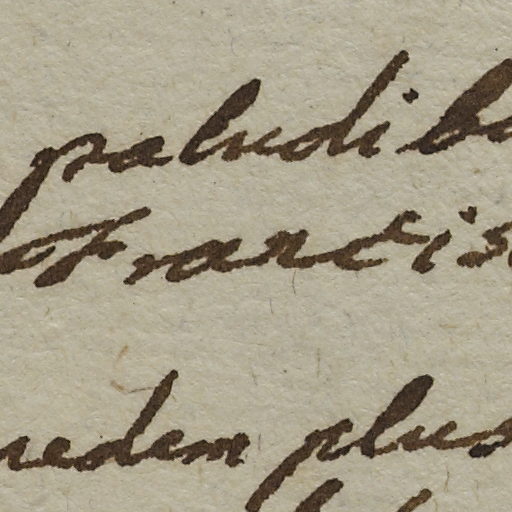 paludibu
Francis
aedam plus